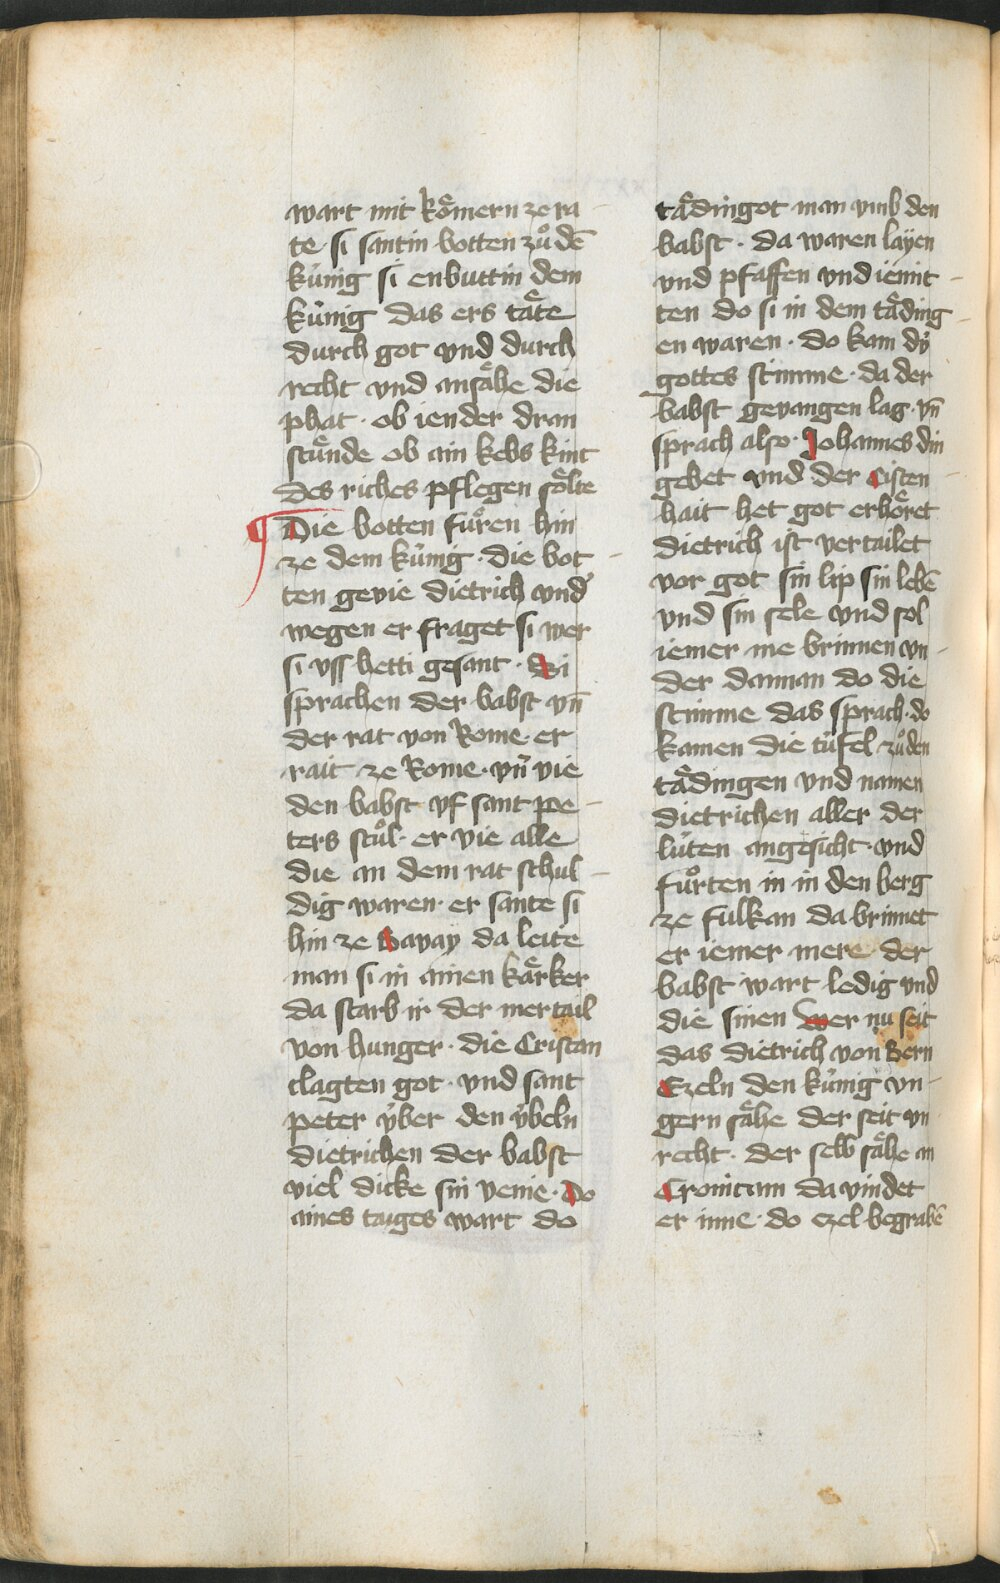 wart mit Roͤmern ze ra
te. si santin botten zuͦ dē
kúnig si enbuttin dem
kúnig das ers taͤte
durch got vnd durch
recht vnd ansaͤhe die
phat. ob iender dran
stuͤnde ob ain kebs kint
des riches pflegen soͤlte
¶ Die botten fuͦren hin
ze dem kúnig. die bot
ten gevie dietrich vnd
wegen er fraget si wer
si vss hetti gesant. Si
sprachen der babst vn̄
der rat von Rome. er
rait ze Rome. vn̄ vie
den babst vf sant pe
ters stuͦl. er vie alle
die an dem rat schul
dig waren. er sante si
hin ze Pavaÿ da leite
man si in ainen kaͤrker
da starb ir der mertail
von hunger. die Cristan
clagten got. vnd sant
peter v́ber den v́beln
dietrichen der babst
viel dicke sin venie. Do
aines tages wart do
taͤdingot man vmb den
babst. da waren laÿen
vnd pfaffen vnd iemit
ten do si in dem taͤding
en waren. do kam dÿ
gottes stimme. da der
babst gevangen lag. vn̄
sprach also. Johannes din
gebet vnd der Cristen
hait het got erhoͤret
dietrich ist vertailet
vor got sin lip sin lebē
vnd sin sele vnd sol
iemer me brinnen vn
der dannan do die
stimme das sprach. do
kamen die túfel zuͦ den
taͤdingen vnd namen
dietrichen aller der
lúten angesicht. vnd
fuͦrten in in den berg
ze fulkan da brinnet
er iemer mere der
babst wart ledig vnd
die sinen Wer nu seit
das dietrich von Bern
Ezeln den kúnig vn
gern saͤhe der seit vn
recht. der selb saͤhe an
Cronicam da vindet
er inne. do ezel begrabē